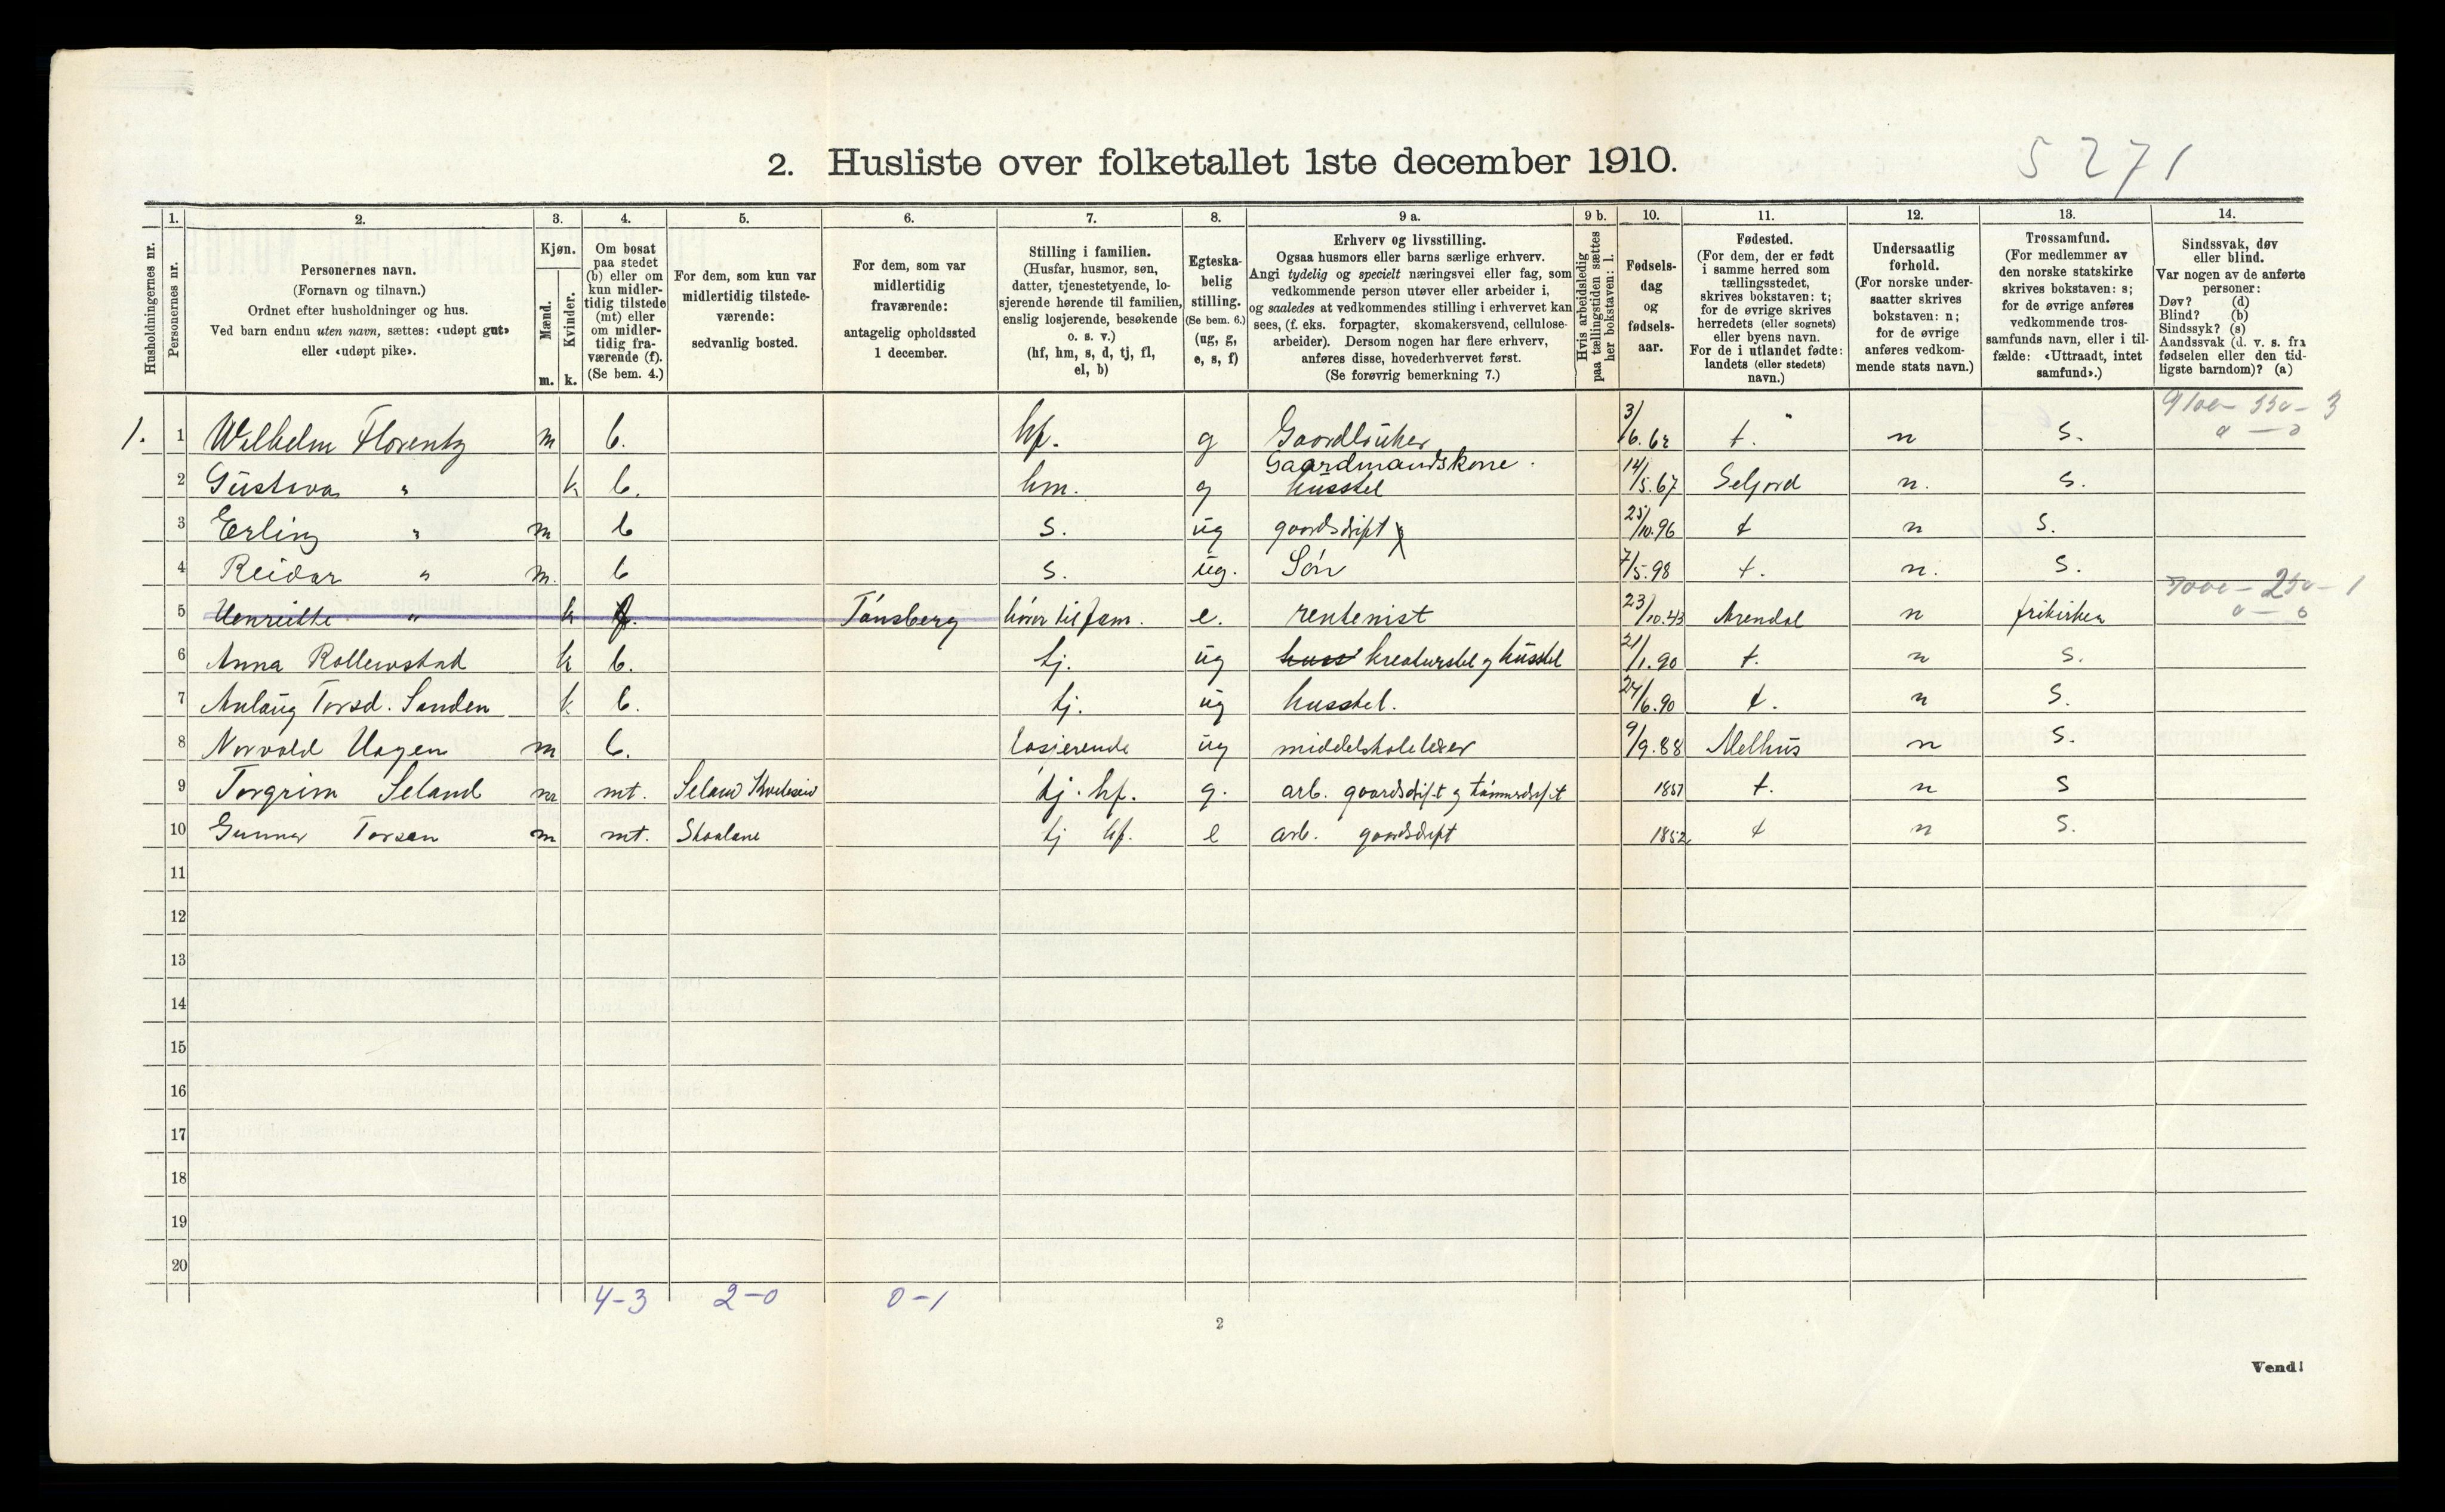 2. Husliste over folketallet 1ste december 1910.
5271
Husholdningernes nr.
1.
Personernes nr.
2.
Personernes navn.
(Fornavn og tilnavn.)
Ordnet efter husholdninger og hus.
Ved barn endnu uten navn, sættes: «udøpt gut»
eller «udøpt pike».
3.
Kjøn.
Mænd.
Kvinder.
m. k.
4.
Om bosat
paa stedet
(b) eller om
kun midler-
tidig tilstede
(mt) eller
om midler-
tidig fra-
værende (f).
(Se bem. 4.)
5.
For dem, som kun var
midlertidig tilstede-
værende:
sedvanlig bosted.
6.
For dem, som var
midlertidig
fraværende:
antagelig opholdssted
1 december.
7.
Stilling i familien.
(Husfar, husmor, søn,
datter, tjenestetyende, lo-
sjerende hørende til familien,
enslig losjerende, besøkende
o. s. v.)
(hf, hm, s, d, tj, fl,
el, b)
8.
Egteska-
belig
stilling.
(Se bem. 6.)
(ug, g,
e, s, f)
9 a.
Erhverv og livsstilling.
Ogsaa husmors eller barns særlige erhverv.
Angi tydelig og specielt næringsvei eller fag, som
vedkommende person utøver eller arbeider i,
og saaledes at vedkommendes stilling i erhvervet kan
sees, (f. eks. forpagter, skomakersvend, cellulose-
arbeider). Dersom nogen har flere erhverv,
anføres disse, hovederhvervet først.
(Se forøvrig bemerkning 7.)
9 b.
Hvis arbeidsledig
paa tællingstiden sættes
her bokstaven: l.
10.
Fødsels-
dag
og
fødsels-
aar.
11.
Fødested.
(For dem, der er født
i samme herred som
tællingsstedet,
skrives bokstaven: t;
for de øvrige skrives
herredets (eller sognets)
eller byens navn.
For de i utlandet fødte:
landets (eller stedets)
navn.)
12.
Undersaatlig
forhold.
(For norske under-
saatter skrives
bokstaven: n;
for de øvrige
anføres vedkom-
mende stats navn.)
13.
Trossamfund.
(For medlemmer av
den norske statskirke
skrives bokstaven: s;
for de øvrige anføres
vedkommende tros-
samfunds navn, eller i til-
fælde: «Uttraadt, intet
samfund».)
14.
Sindssvak, døv
eller blind.
Var nogen av de anførte
personer:
Døv? (d)
Blind? (b)
Sindssyk? (s)
Aandssvak (d. v. s. fra
fødselen eller den tid-
ligste barndom)? (a)
1. 1 Wilhelm Florentz m b. hf. g Gaardbruker 3/6.62 t. n s.
2 Gustava " k b. hm. g Gaardmandskone. husstel 14/5.67 Seljord n. s.
3 Erling " m b s. ug gaardsdrift 25/10.96 t n s.
4 Reidar " m. b s. ug. Søn 7/5.98 t. n. s.
5 Henriette " k f. Tønsberg hører til fam. e. rentenist 23/10.43 Arendal n frikirken
6 Anna Rollevstad k b. tj. ug kreaturstel og husstel 21/1.90 t. n s.
7 Anlaug Torsd. Sanden k b. tj. ug husstel. 24/6.90 t. n s.
8 Norvald Hagen m b. losjerende ug middelskolelærer 9/9.88 Melhus n s.
9 Torgrim Seland m mt. Seland Kviteseid tj. hf. g. arb. gaardsdrift og tømmerdrift 1857 t. n s
10 Gunnar Torsen m mt. Skaalane tj hf. e arb. gaardsdrift 1852 t n s.
11
12
13
14
15
16
17
18
19
20
4-3 2-0 0-1
2
Vend!